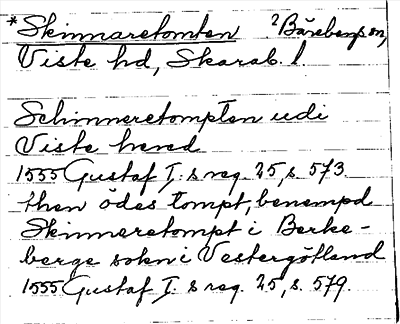 *Skinnaretomten ²Bärebergs sn,
Viste hd, Skarab. l
Schinneretompten udi
Viste hered
1555 Gustaf I:s reg. 25, s. 573.
then ödes tompt, benempd
Skinneretompt i Berke-
berge sokn i Vestergötland
1555 Gustaf I:s reg. 25, s. 579.